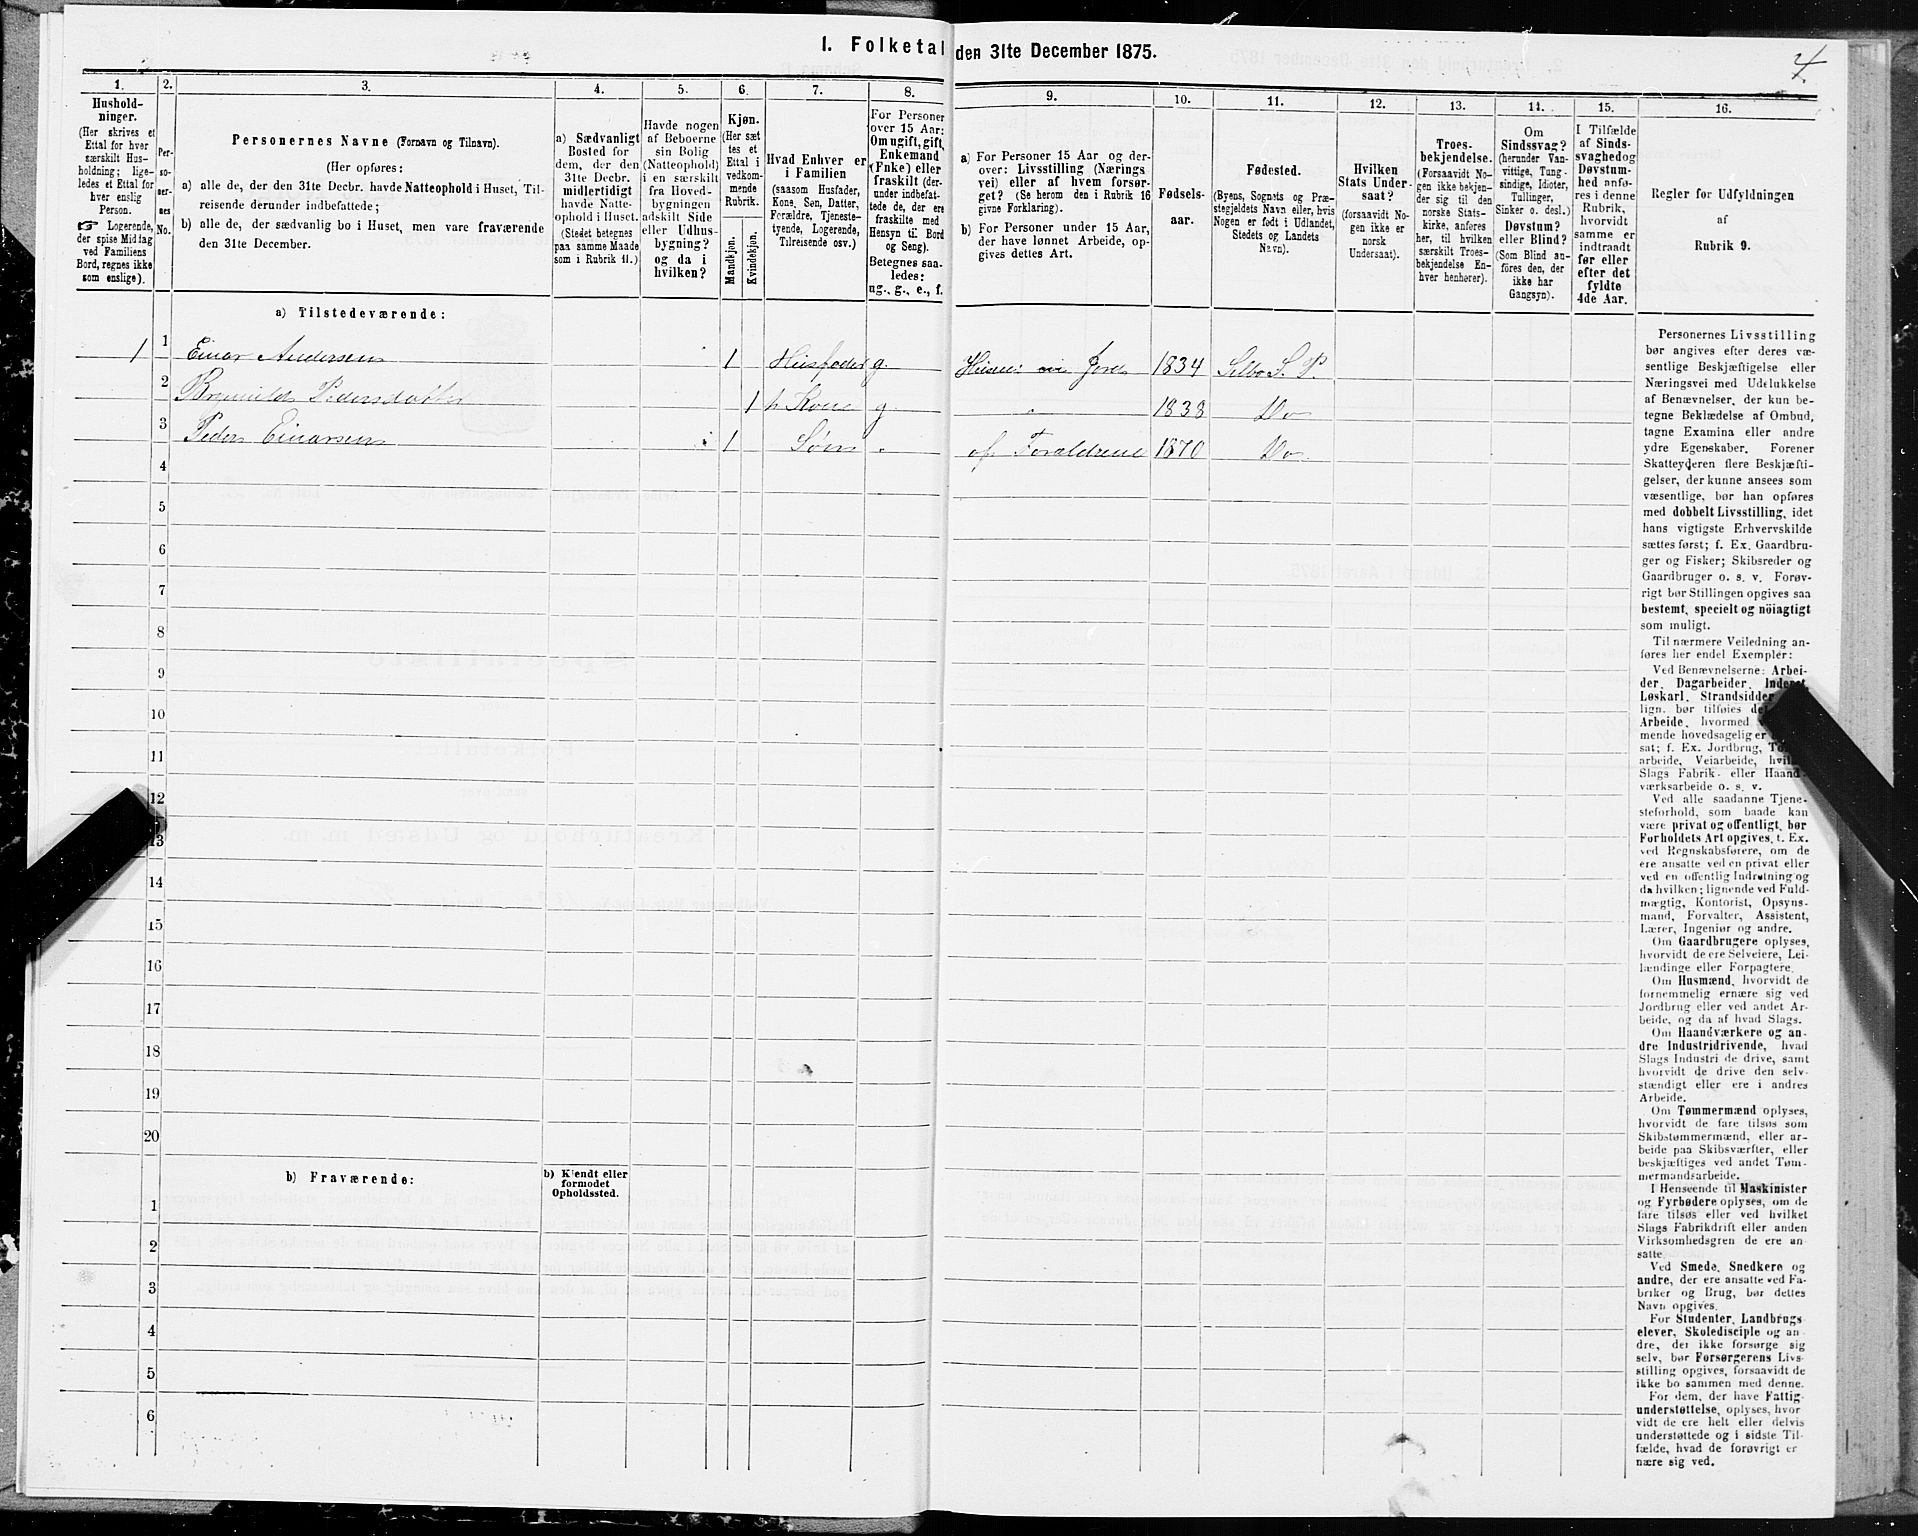 1. Folketal den 31te December 1875.
4.
1.
Hushold-
ninger.
(Her skrives et
Ettal for hver
særskilt Hus-
holdning; lige-
ledes et Ettal for
hver enslig
Person.
☞ Logerende,
der spise Middag
ved Familiens
Bord, regnes ikke
som enslige).
2.
Per-
so-
ner-
nes
No.
3.
Personernes Navne (Fornavn og Tilnavn).
(Her opføres:
a) alle de, der den 31te Decbr. havde Natteophold i Huset, Til-
reisende derunder indbefattede;
b) alle de, der sædvanlig bo i Huset, men vare fraværende
den 31te December.
4.
a) Sædvanligt
Bosted for
dem, der den
31te Decbr.
midlertidigt
havde Natte-
ophold i Huset.
(Stedet betegnes
paa samme Maade
som i Rubrik 11.)
5.
Havde nogen
af Beboerne
sin Bolig
(Natteophold)
i en særskilt
fra Hoved-
bygningen
adskilt Side
eller Udhus-
bygning?
og da i
hvilken?
6.
Kjøn.
(Her sæt
tes et
Ettal i
vedkom-
mende
Rubrik.
Mandkjøn.
Kvindekjøn.
7.
Hvad Enhver er
i Familien
(saasom Husfader,
Kone, Søn, Datter,
Forældre, Tjeneste-
tyende, Logerende,
Tilreisende osv.)
8.
For Personer
over 15 Aar:
Om ugift, gift,
Enkemand
(Enke) eller
fraskilt (der-
under indbefat-
tede de, der ere
fraskilte med
Hensyn til Bord
og Seng).
Betegnes saa-
ledes:
ug., g., e., f.
9.
a) For Personer 15 Aar og der-
over: Livsstilling (Nærings
vei) eller af hvem forsør-
get? (Se herom den i Rubrik 16
givne Forklaring).
b) For Personer under 15 Aar,
der have lønnet Arbeide, op-
gives dettes Art.
10.
Fødsels-
aar.
11.
Fødested.
(Byens, Sognets og Præ-
stegjeldets Navn eller, hvis
Nogen er født i Udlandet,
Stedets og Landets
Navn).
12.
Hvilken
Stats Under-
saat?
(forsaavidt No-
gen ikke er
norsk
Undersaat).
13.
Troes-
bekjendelse.
(Forsaavidt No-
gen ikke bekjen-
der sig til den
norske Stats-
kirke, anføres
her, til hvilken
særskilt Troes-
bekjendelse En-
hver henhører).
14.
Om
Sindssvag?
(herunder Van-
vittige, Tung-
sindige, Idioter,
Tullinger,
Sinker o. desl.)
Døvstum?
eller Blind?
(Som Blind an-
føres den, der
ikke har
Gangsyn).
15.
I Tilfælde
af Sinds-
svaghed og
Døvstum-
hed anfø-
res i denne
Rubrik,
hvorvidt
samme er
indtraadt
før eller
efter det
fyldte
4de Aar.
16.
Regler for Udfyldningen
af
Rubrik 9.
a) Tilstedeværende:
1 1 Einar Andersen 1 Husfader g. 1834 Selbo S. P.
2 Pedersdatter 1 h Kone g. 1838 Do
3 Peder Einarsen 1 Søn af Forældrene 1870 Do
4
5
6
7
8
9
10
11
12
13
14
15
16
17
18
19
20
b) Fraværende:
b) Kjendt eller
formodet
Opholdssted.
1
2
3
4
5
6
Personernes Livsstilling
bør angives efter deres væ-
sentlige Beskjæftigelse eller
Næringsvei med Udelukkelse
af Benævnelser, der kun be-
tegne Beklædelse af Ombud,
tagne Examina eller andre
ydre Egenskaber. Forener
Skatteyderen flere Beskjæfti-
gelser, der kunne ansees som
væsentlige, bør han opføres
med dobbelt Livsstilling, idet
hans vigtigste Erhvervskilde
sættes først; f. Ex. Gaardbru-
ger og Fisker; Skibsreder og
Gaardbruger o. s. v. Forøv-
rigt bør Stillingen opgives saa
bestemt, specielt og nøiagtigt
som muligt.
Til nærmere Veiledning an-
føres her endel Exempler:
Ved Benævnelserne: Arbei-
der, Dagarbeider, Inderst,
Løskarl, Strandsidder
lign. bør tilføies
Arbeide, hvormed
mende hovedsagelig er
sat; f. Ex. Jordbrug,
arbeide, Veiarbeide,
Slags Fabrik- eller Haand-
værksarbeide o. s. v.
Ved alle saadanne Tjene-
steforhold, som baade kan
være privat og offentligt, bør
Forholdets Art opgives, t. Ex.
ved Regnskabsførere, om de
ere ansatte ved en privat eller
ved en offentlig Indretning og
da hvilken; lignende ved Fuld-
mægtig, Kontorist, Opsyns-
mand, Forvalter, Assistent,
Lærer, Ingeniør og andre.
Om Gaardbrugere oplyses,
hvorvidt de ere Selveiere, Lei-
lændinge eller Forpagtere.
Om Husmænd, hvorvidt de
fornemmelig ernære sig ved
Jordbrug eller ved andet Ar-
beide, og da af hvad Slags.
Om Haandværkere og an-
dre Industridrivende, hvad
Slags Industri de drive, samt
hvorvidt de drive den selv-
stændigt eller ere i andres
Arbeide.
Om Tømmermænd oplyses,
hvorvidt de fare tilsøs som
Skibstømmermænd, eller ar-
beide paa Skibsværfter, eller
beskjæftiges ved andet Tøm-
mermandsarbeide.
I Henseende til Maskinister
og Fyrbødere oplyses, om de
fare tilsøs eller ved hvilket
Slags Fabrikdrift eller anden
Virksomhedsgren de ere an
satte.
Ved Smede, Snedkere og
andre, der ere ansatte ved Fa-
briker og Brug, bør dettes
Navn opgives.
For Studenter, Landbrugs
elever, Skoledisciple og an
dre, der ikke forsørge sig
selv, bør Forsørgerens Livs-
stilling opgives, forsaavidt de
ikke bo sammen med denne.
For dem, der have Fattig-
understøttelse, oplyses, hvor
vidt de ere helt eller delvis
understøttede og i sidste Til-
fælde, hvad de forøvrigt er
nære sig ved.